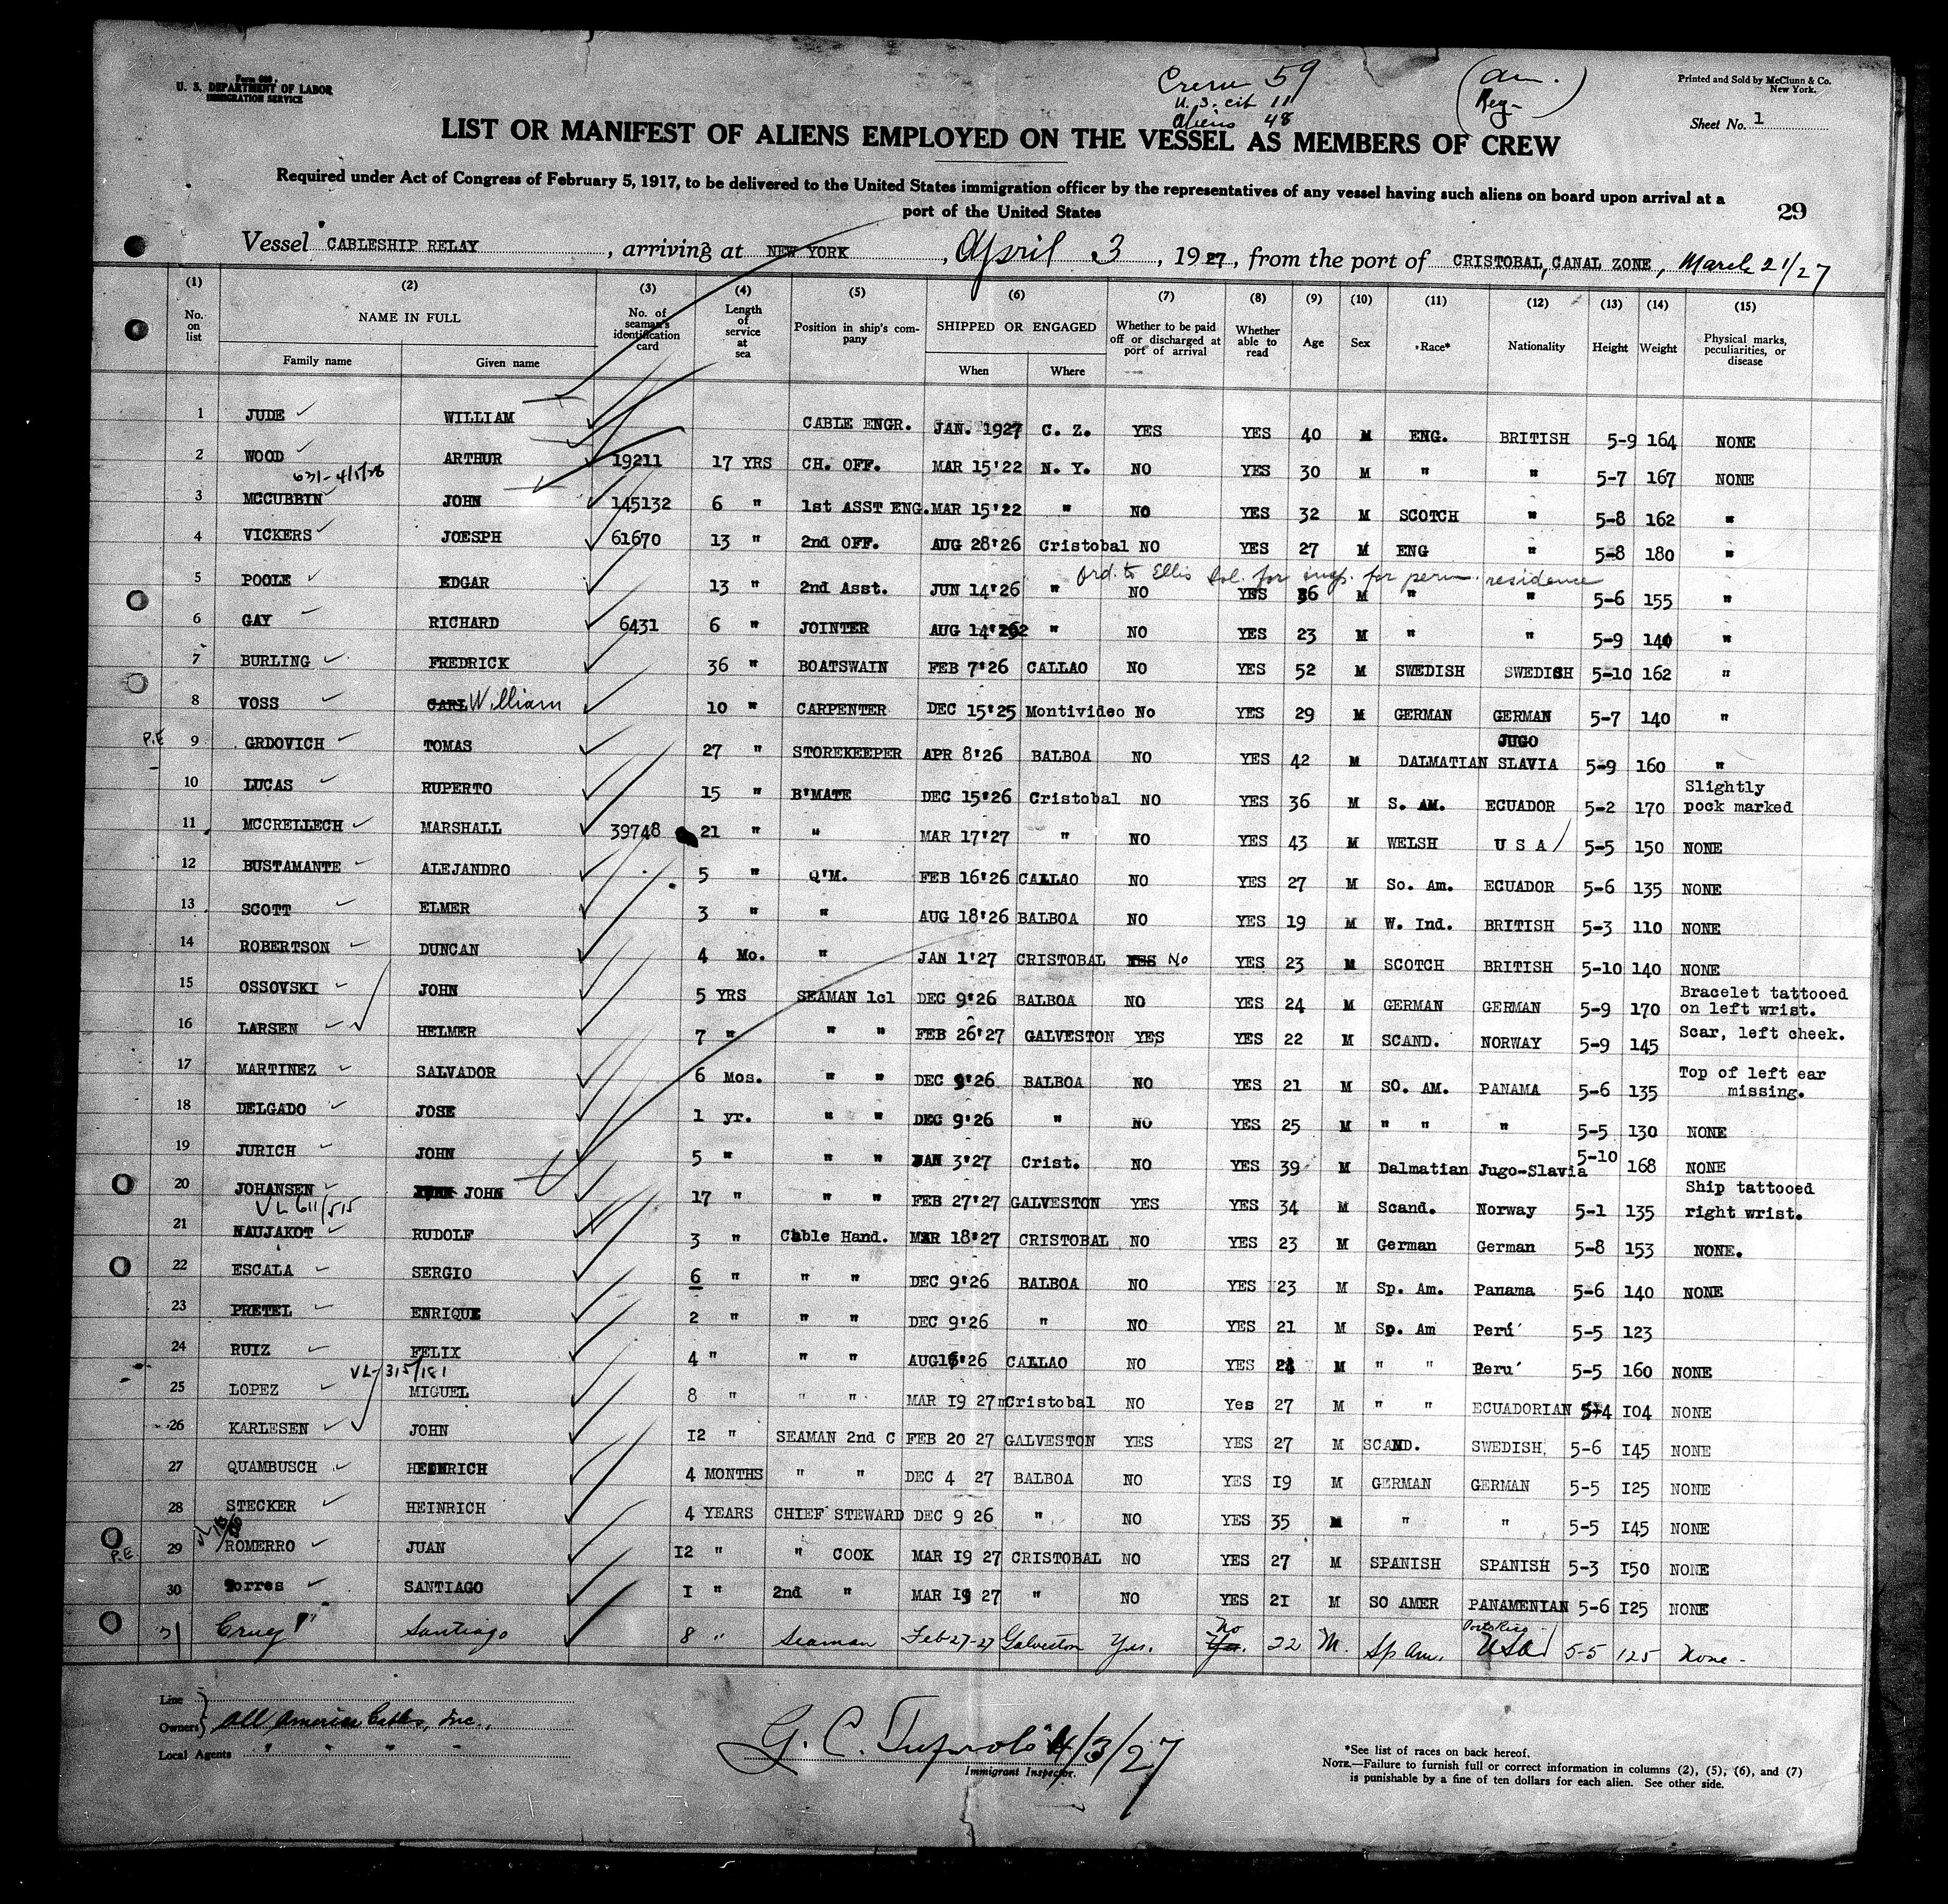 Form 680
U. S. DEPARTMENT OF LABOR
IMMIGRATION SERVICE
Crew 59
U. S. cit 11
Aliens 48
(am. Reg-)
Printed and Sold by McClunn & Co.
New York.
Sheet No. 1
LIST OR MANIFEST OF ALIENS EMPLOYED ON THE VESSEL AS MEMBERS OF CREW
Required under Act of Congress of February 5, 1917, to be delivered to the United States immigration officer by the representatives of any vessel having such aliens on board upon arrival at a
port of the United States
29
Vessel CABLESHIP RELAY, arriving at NEW YORK, April 3, 1927, from the port of CRISTOBAL, CANAL ZONE, March 21/27
(1) (2) (3) (4) (5) (6) (7) (8) (9) (10) (11) (12) (13) (14) (15)
No. on list NAME IN FULL Family name Given name No. of seaman's identification card Length of service at sea Position in ship's company SHIPPED OR ENGAGED When Where Whether to be paid off or discharged at port of arrival Whether able to read Age Sex Race* Nationality Height Weight Physical marks, peculiarities, or disease
1 JUDE WILLIAM CABLE ENGR. JAN. 1927 C. Z. YES YES 40 M ENG. BRITISH 5-9 164 NONE
2 WOOD ARTHUR 19211 17 YRS CH. OFF. MAR 15'22 N. Y. NO YES 30 M " " 5-7 167 NONE
3 MCCUBBIN JOHN 145132 6 " 1st ASST ENG. MAR 15'22 " NO YES 32 M SCOTCH " 5-8 162 "
4 VICKERS JOESPH 61670 13 " 2nd OFF. AUG 28'26 Cristobal NO YES 27 M ENG " 5-8 180 "
Ord. to Ellis Isl. for insp. for perm. residence
5 POOLE EDGAR 13 " 2nd Asst. JUN 14'26 " NO YES 36 M " " 5-6 155 "
6 GAY RICHARD 6431 6 " JOINTER AUG 14'26 " NO YES 23 M " " 5-9 140 "
7 BURLING FREDRICK 36 " BOATSWAIN FEB 7'26 CALLAO NO YES 52 M SWEDISH SWEDISH 5-10 162 "
8 VOSS CARL William 10 " CARPENTER DEC 15'25 Montivideo No YES 29 M GERMAN GERMAN 5-7 140 "
P.E 9 GRDOVICH TOMAS 27 " STOREKEEPER APR 8'26 BALBOA NO YES 42 M DALMATIAN JUGO SLAVIA 5-9 160 "
10 LUCAS RUPERTO 15 " B'MATE DEC 15'26 Cristobal NO YES 36 M S. AM. ECUADOR 5-2 170 Slightly pock marked
11 MCCRELLECH MARSHALL 39748 21 " " MAR 17'27 " NO YES 43 M WELSH U S A 5-5 150 NONE
12 BUSTAMANTE ALEJANDRO 5 " Q'M. FEB 16'26 CALLAO NO YES 27 M So. Am. ECUADOR 5-6 135 NONE
13 SCOTT ELMER 3 " " AUG 18'26 BALBOA NO YES 19 M W. Ind. BRITISH 5-3 110 NONE
14 ROBERTSON DUNCAN 4 Mo. " JAN 1'27 CRISTOBAL YES No YES 23 M SCOTCH BRITISH 5-10 140 NONE
15 OSSOVSKI JOHN 5 YRS SEAMAN 1cl DEC 9'26 BALBOA NO YES 24 M GERMAN GERMAN 5-9 170 Bracelet tattooed on left wrist.
16 LARSEN HELMER 7 " " " FEB 26'27 GALVESTON YES YES 22 M SCAND. NORWAY 5-9 145 Scar, left cheek.
17 MARTINEZ SALVADOR 6 Mos. " " DEC 9'26 BALBOA NO YES 21 M SO. AM. PANAMA 5-6 135 Top of left ear missing.
18 DELGADO JOSE 1 yr. " " DEC 9'26 " NO YES 25 M " " " 5-5 130 NONE
19 JURICH JOHN 5 " " " JAN 3'27 Crist. NO YES 39 M Dalmatian Jugo-Slavia 5-10 168 NONE
20 JOHANSEN JOHN 17 " " " FEB 27'27 GALVESTON YES YES 34 M Scand. Norway 5-1 135 Ship tattooed right wrist.
21 NAUJAKOT RUDOLF 3 " Cable Hand. MAR 18'27 CRISTOBAL NO YES 23 M German German 5-8 153 NONE.
22 ESCALA SERGIO 6 " " " DEC 9'26 BALBOA NO YES 23 M Sp. Am. Panama 5-6 140 NONE
23 PRETEL ENRIQUE 2 " " " DEC 9'26 " NO YES 21 M Sp. Am Perú 5-5 123
24 RUIZ FELIX 4 " " " AUG16'26 CALLAO NO YES M " " Peru' 5-5 160 NONE
VL-315/181
25 LOPEZ MIGUEL 8 " " " MAR 19 27 Cristobal NO Yes 27 M " " ECUADORIAN 5-4 104 NONE
26 KARLESEN JOHN 12 " SEAMAN 2nd C FEB 20 27 GALVESTON YES YES 27 M SCAND. SWEDISH 5-6 145 NONE
27 QUAMBUSCH HEINRICH 4 MONTHS " " DEC 4 27 BALBOA NO YES 19 M GERMAN GERMAN 5-5 125 NONE
28 STECKER HEINRICH 4 YEARS CHIEF STEWARD DEC 9 26 " NO YES 35 M " " 5-5 145 NONE
P.E 29 ROMERRO JUAN 12 " " COOK MAR 19 27 CRISTOBAL NO YES 27 M SPANISH SPANISH 5-3 150 NONE
30 Torres SANTIAGO 1 " 2nd " MAR 19 27 " NO YES 21 M SO AMER PANAMENIAN 5-6 125 NONE
31 Cruz Santiago 8 " Seaman Feb 27-27 Galveston Yes. Yes. No 22 M. Sp Am. Porto Rico USA 5-5 125 None -
Line
Owners All America Cables, Inc.,
Local Agents " " " "
G. C. 4/3/27
Immigrant Inspector.
*See list of races on back hereof.
NOTE.—Failure to furnish full or correct information in columns (2), (5), (6), and (7)
is punishable by a fine of ten dollars for each alien. See other side.